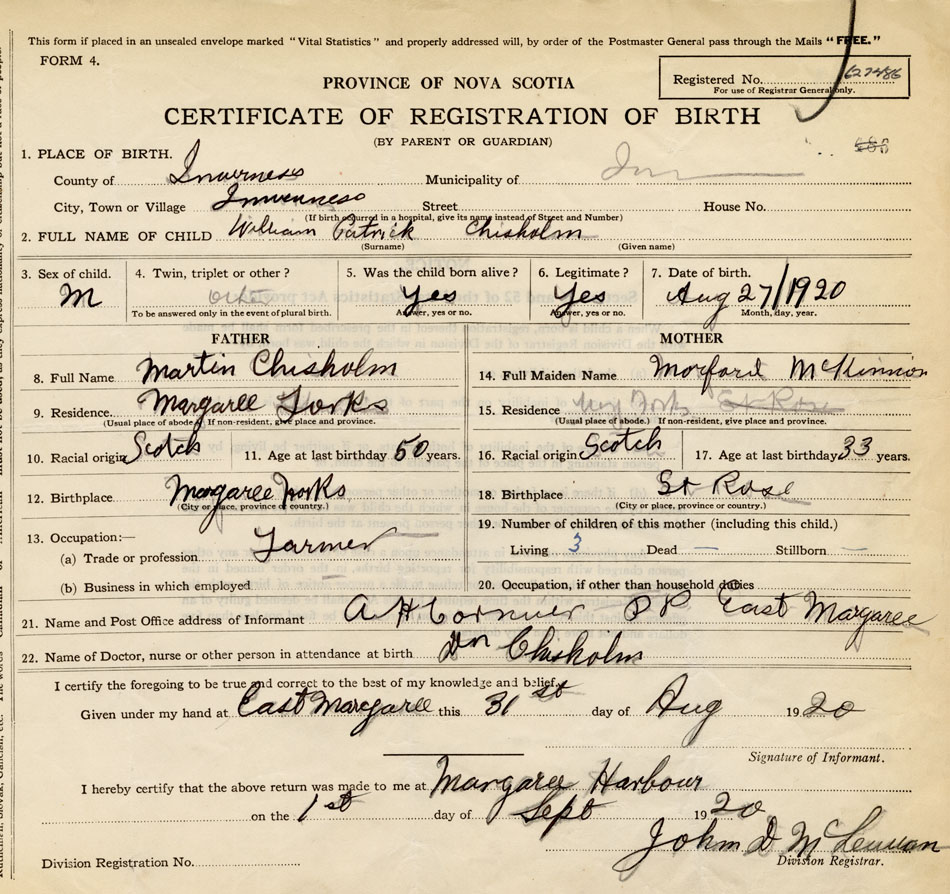 This form if placed in an unsealed envelope marked "Vital Statistics" and properly addressed will, by order of the Postmaster General pass through the Mails "FREE."
FORM 4.
Registered No. 627486
For use of Registrar General only.
PROVINCE OF NOVA SCOTIA
CERTIFICATE OF REGISTRATION OF BIRTH
(BY PARENT OR GUARDIAN)
1. PLACE OF BIRTH.
County of Inverness Municipality of
City, Town or Village Inverness Street House No.
(If birth occurred in a hospital, give its name instead of Street and Number)
2. FULL NAME OF CHILD William Patrick Chisholm
(Surname) (Given name)
3. Sex of child. 4. Twin, triplet or other? 5. Was the child born alive? 6. Legitimate? 7. Date of birth.
M Yes Yes Aug 27/1920
To be answered only in the event of plural birth. Answer, yes or no. Answer, yes or no. Month, day, year.
FATHER
8. Full Name Martin Chisholm
9. Residence. Margaree Forks
(Usual place of abode.) If non-resident, give place and province.
10. Racial origin Scotch 11. Age at last birthday 50 years.
12. Birthplace Margaree Forks
(City or place, province or country.)
13. Occupation:—
(a) Trade or profession Farmer
(b) Business in which employed
MOTHER
14. Full Maiden Name Morford McKinnon
15. Residence Forks St Rose
(Usual place of abode.) If non-resident, give place and province.
16. Racial origin Scotch 17. Age at last birthday 33 years.
18. Birthplace St Rose
(City or place, province or country.)
19. Number of children of this mother (including this child.)
Living 3 Dead — Stillborn —
20. Occupation, if other than household duties
21. Name and Post Office address of Informant A H Cormier P P East Margaree
22. Name of Doctor, nurse or other person in attendance at birth Dr Chisholm
I certify the foregoing to be true and correct to the best of my knowledge and belief.
Given under my hand at East Margaree this 31st day of Aug 1920
Signature of Informant.
I hereby certify that the above return was made to me at Margaree Harbour
on the 1st day of Sept 1920
John D McLennan
Division Registrar.
Division Registration No.